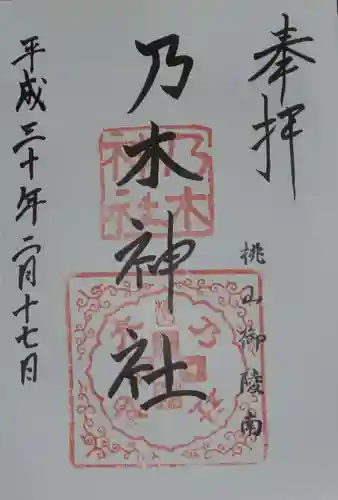 奉拝
桃山御陵南
乃木神社
乃木神社
平成三十年二月十七日